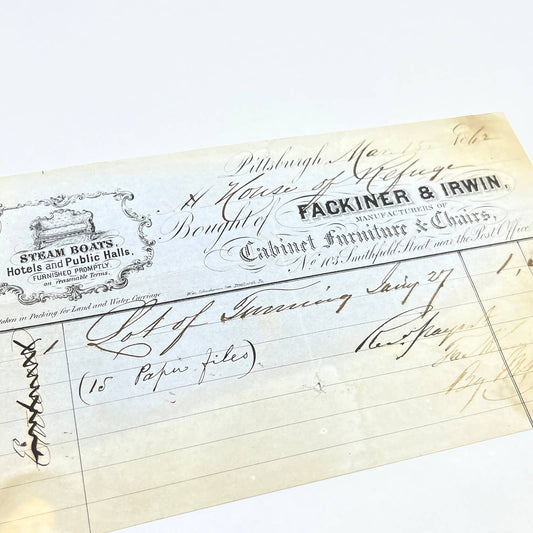 Pittsburgh Mar 15 1862
H House of Refuge
Bought of FACKINER & IRWIN,
MANUFACTURERS OF
Cabinet Furniture & Chairs,
No 103 Smithfield Street, near the Post Office
STEAM BOATS,
Hotels and Public Halls,
FURNISHED PROMPTLY
on reasonable Terms.
taken in Packing for Land and Water Carriage
Lot of Turning Jany 27
(15 Paper files)